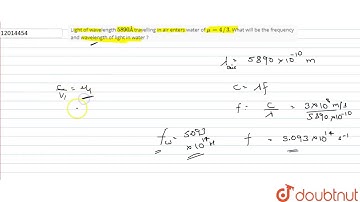 12014454
Light of wavelength 5890Å travelling in air enters water of μ = 4/3. What will be the frequency
and wavelength of light in water ?
λair = 5890 × 10⁻¹⁰ m
c/V₁ = μ₁
c = λf
f = c/λ = 3×10⁸ m/s / 5890 × 10⁻¹⁰
fω = 5.093 × 10¹⁴ H
f = 5.093 × 10¹⁴ s⁻¹
doubtnut